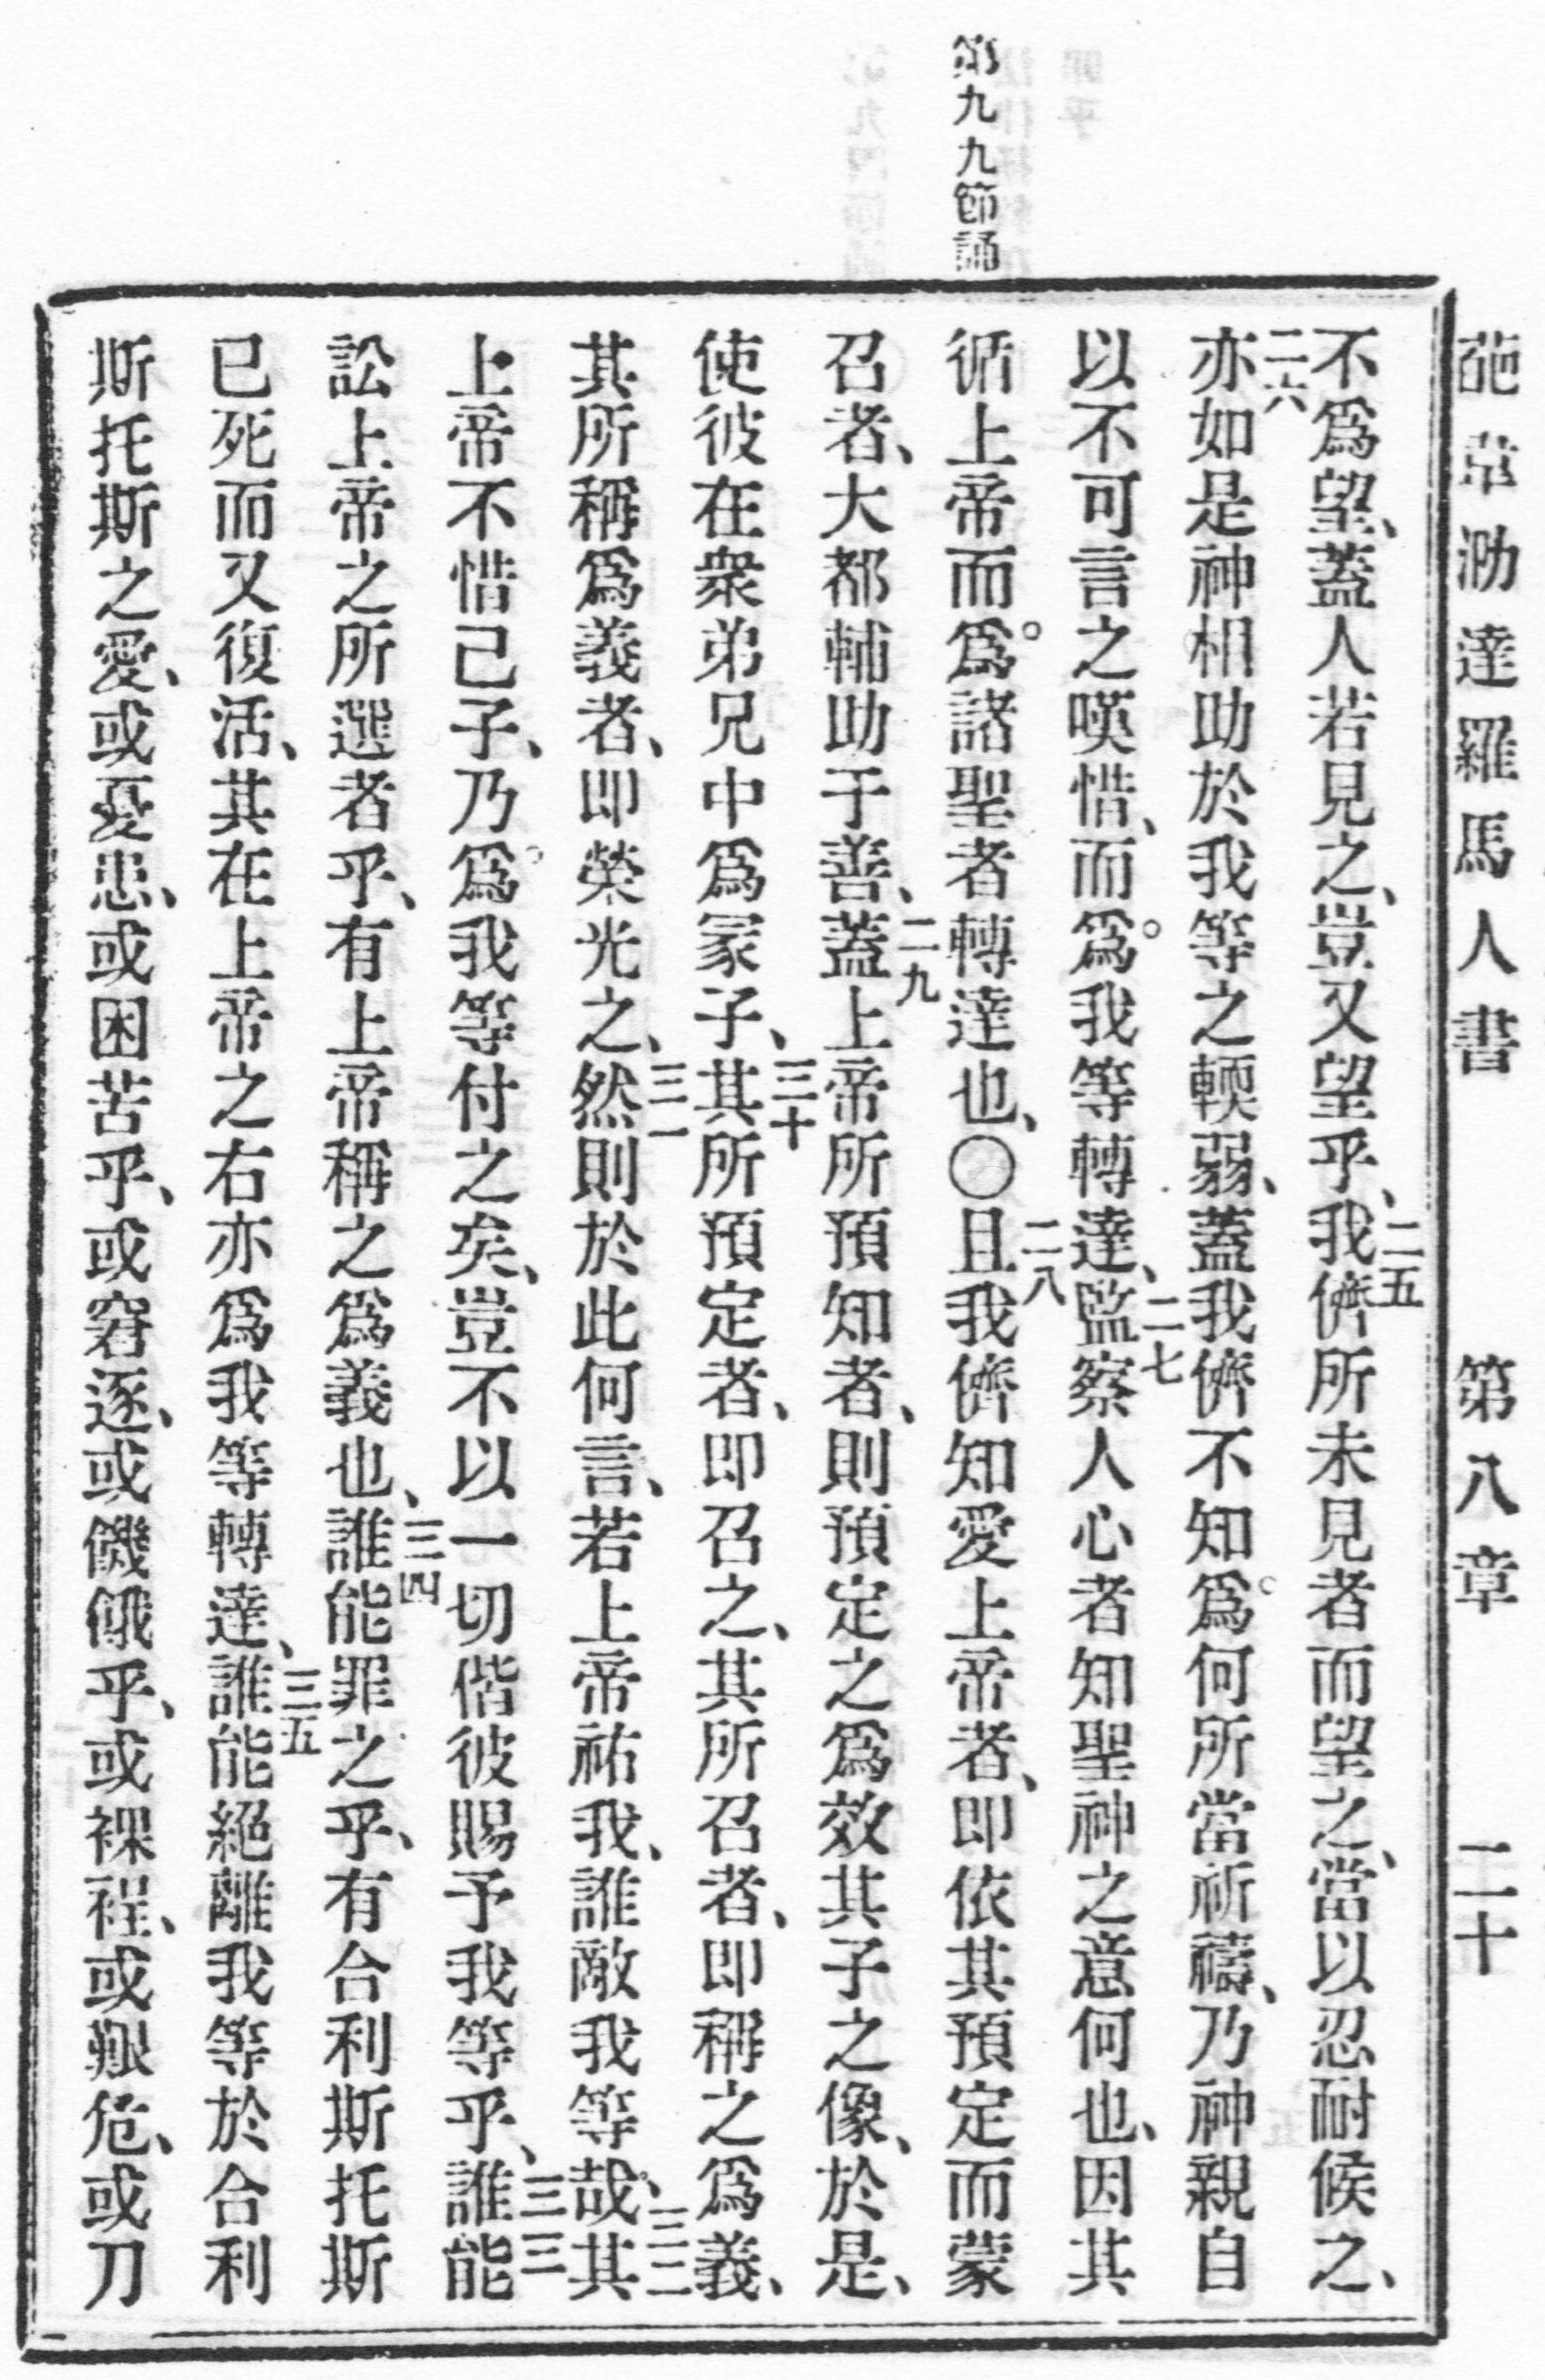 葩韋泐達羅馬人書　第八章　二十
第九九節誦
不爲望、蓋人若見之、豈又望乎、二五我儕所未見者而望之、當以忍耐候之、
二六亦如是神相助於我等之輭弱、蓋我儕不知爲何所當祈禱、乃神親自
以不可言之嘆惜、而爲我等轉達、二七監察人心者知聖神之意何也、因其
循上帝而爲諸聖者轉達也、〇二八且我儕知愛上帝者、即依其預定而蒙
召者、大都輔助于善、二九蓋上帝所預知者、則預定之爲效其子之像、於是、
使彼在衆弟兄中爲冡子、三十其所預定者、即召之、其所召者、即稱之爲義、
其所稱爲義者、即榮光之、三一然則於此何言、若上帝祐我、誰敵我等哉、三二其
上帝不惜己子、乃爲我等付之矣、豈不以一切偕彼賜予我等乎、三三誰能
訟上帝之所選者乎、有上帝稱之爲義也、三四誰能罪之乎、有合利斯托斯
已死而又復活、其在上帝之右亦爲我等轉達、三五誰能絕離我等於合利
斯托斯之愛、或憂患、或困苦乎、或窘逐、或饑餓乎、或裸裎、或艱危、或刀